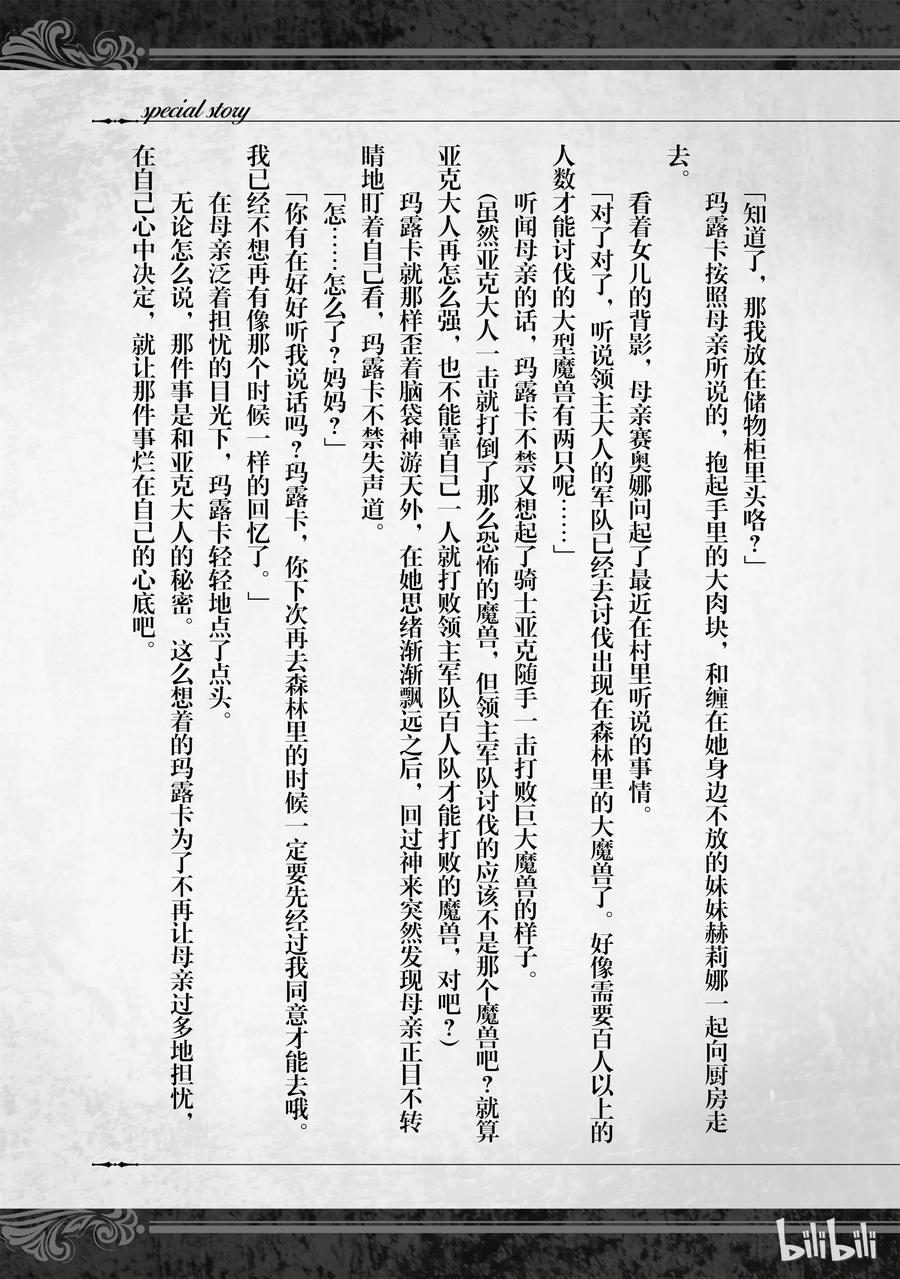 special story
「知道了，那我放在储物柜里头咯？」
玛露卡按照母亲所说的，抱起手里的大肉块，和缠在她身边不放的妹妹赫莉娜一起向厨房走
去。
看着女儿的背影，母亲赛奥娜问起了最近在村里听说的事情。
「对了对了，听说领主大人的军队已经去讨伐出现在森林里的大魔兽了。好像需要百人以上的
人数才能讨伐的大型魔兽有两只呢……」
听闻母亲的话，玛露卡不禁又想起了骑士亚克随手一击打败巨大魔兽的样子。
（虽然亚克大人一击就打倒了那么恐怖的魔兽，但领主军队讨伐的应该不是那个魔兽吧？就算
亚克大人再怎么强，也不能靠自己一人就打败领主军队百人队才能打败的魔兽，对吧？）
玛露卡就那样歪着脑袋神游天外，在她思绪渐渐飘远之后，回过神来突然发现母亲正目不转
睛地盯着自己看，玛露卡不禁失声道。
「怎……怎么了？妈妈？」
「你有在好好听我说话吗？玛露卡，你下次再去森林里的时候一定要先经过我同意才能去哦。
我已经不想再有像那个时候一样的回忆了。」
在母亲泛着担忧的目光下，玛露卡轻轻地点了点头。
无论怎么说，那件事是和亚克大人的秘密。这么想着的玛露卡为了不再让母亲过多地担忧，
在自己心中决定，就让那件事烂在自己的心底吧。
bilibili